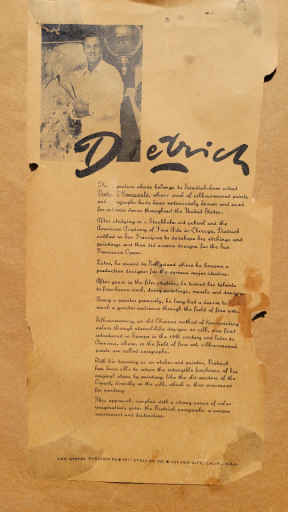 Dietrich
picture above belongs to Swedish-born artist
whose silk-screened prints
have been extensively shown and used
for interior decor throughout the United States.
After studying in a Stockholm art school and the
American Academy of Fine Arts in Chicago, Dietrich
settled in San Francisco to develope his etchings and
paintings and then its scenic designs for the San
Francisco Opera.
Later, he moved to Hollywood where he became a
production designer for the various major studios.
After years in the film studios, he turned his talents
to free-lance work, doing paintings, murals and designs.
Being a creative painter, he long had a desire to
reach a greater audience through the field of fine arts.
Silkscreening, an old Chinese method of transmitting
colors through stencil-like designs on silk, was first
introduced in Europe in the 19th century and later in
America, where, in the field of fine art, silkscreened
prints are called serigraphs.
With his training as an etcher and painter, Dietrich
has been able to retain the intangible freshness of his
original ideas by painting, like the old masters of the
Orient, directly on the silk, which is then processed
for printing.
This approach, coupled with a strong sense of color
imagination gives the Dietrich serigraphs a unique
excitement and distinction.